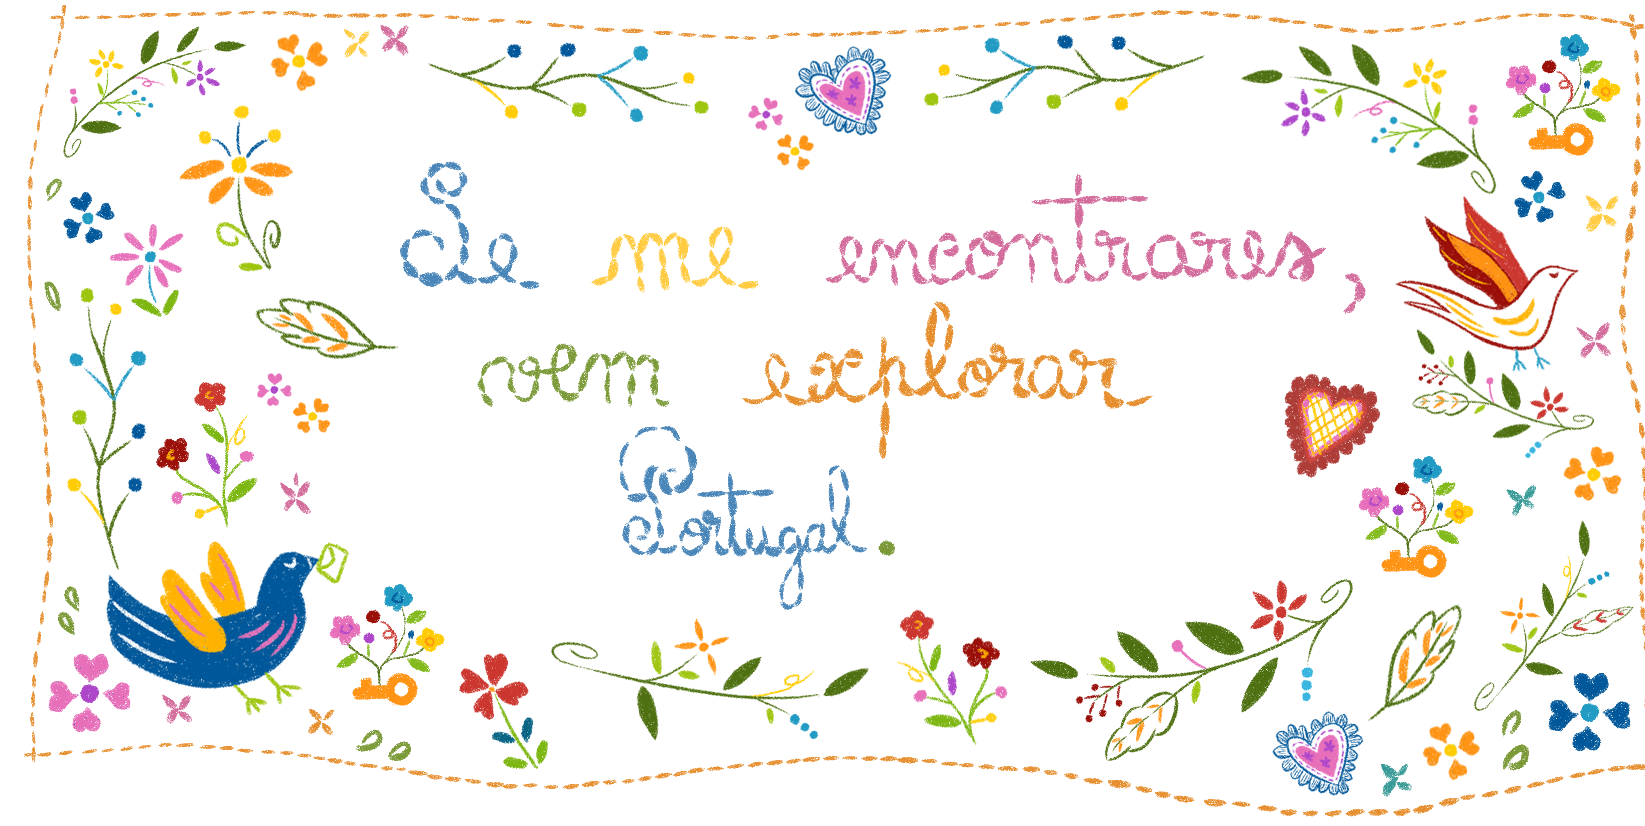 Se me encontrares,
vem explorar
Portugal.